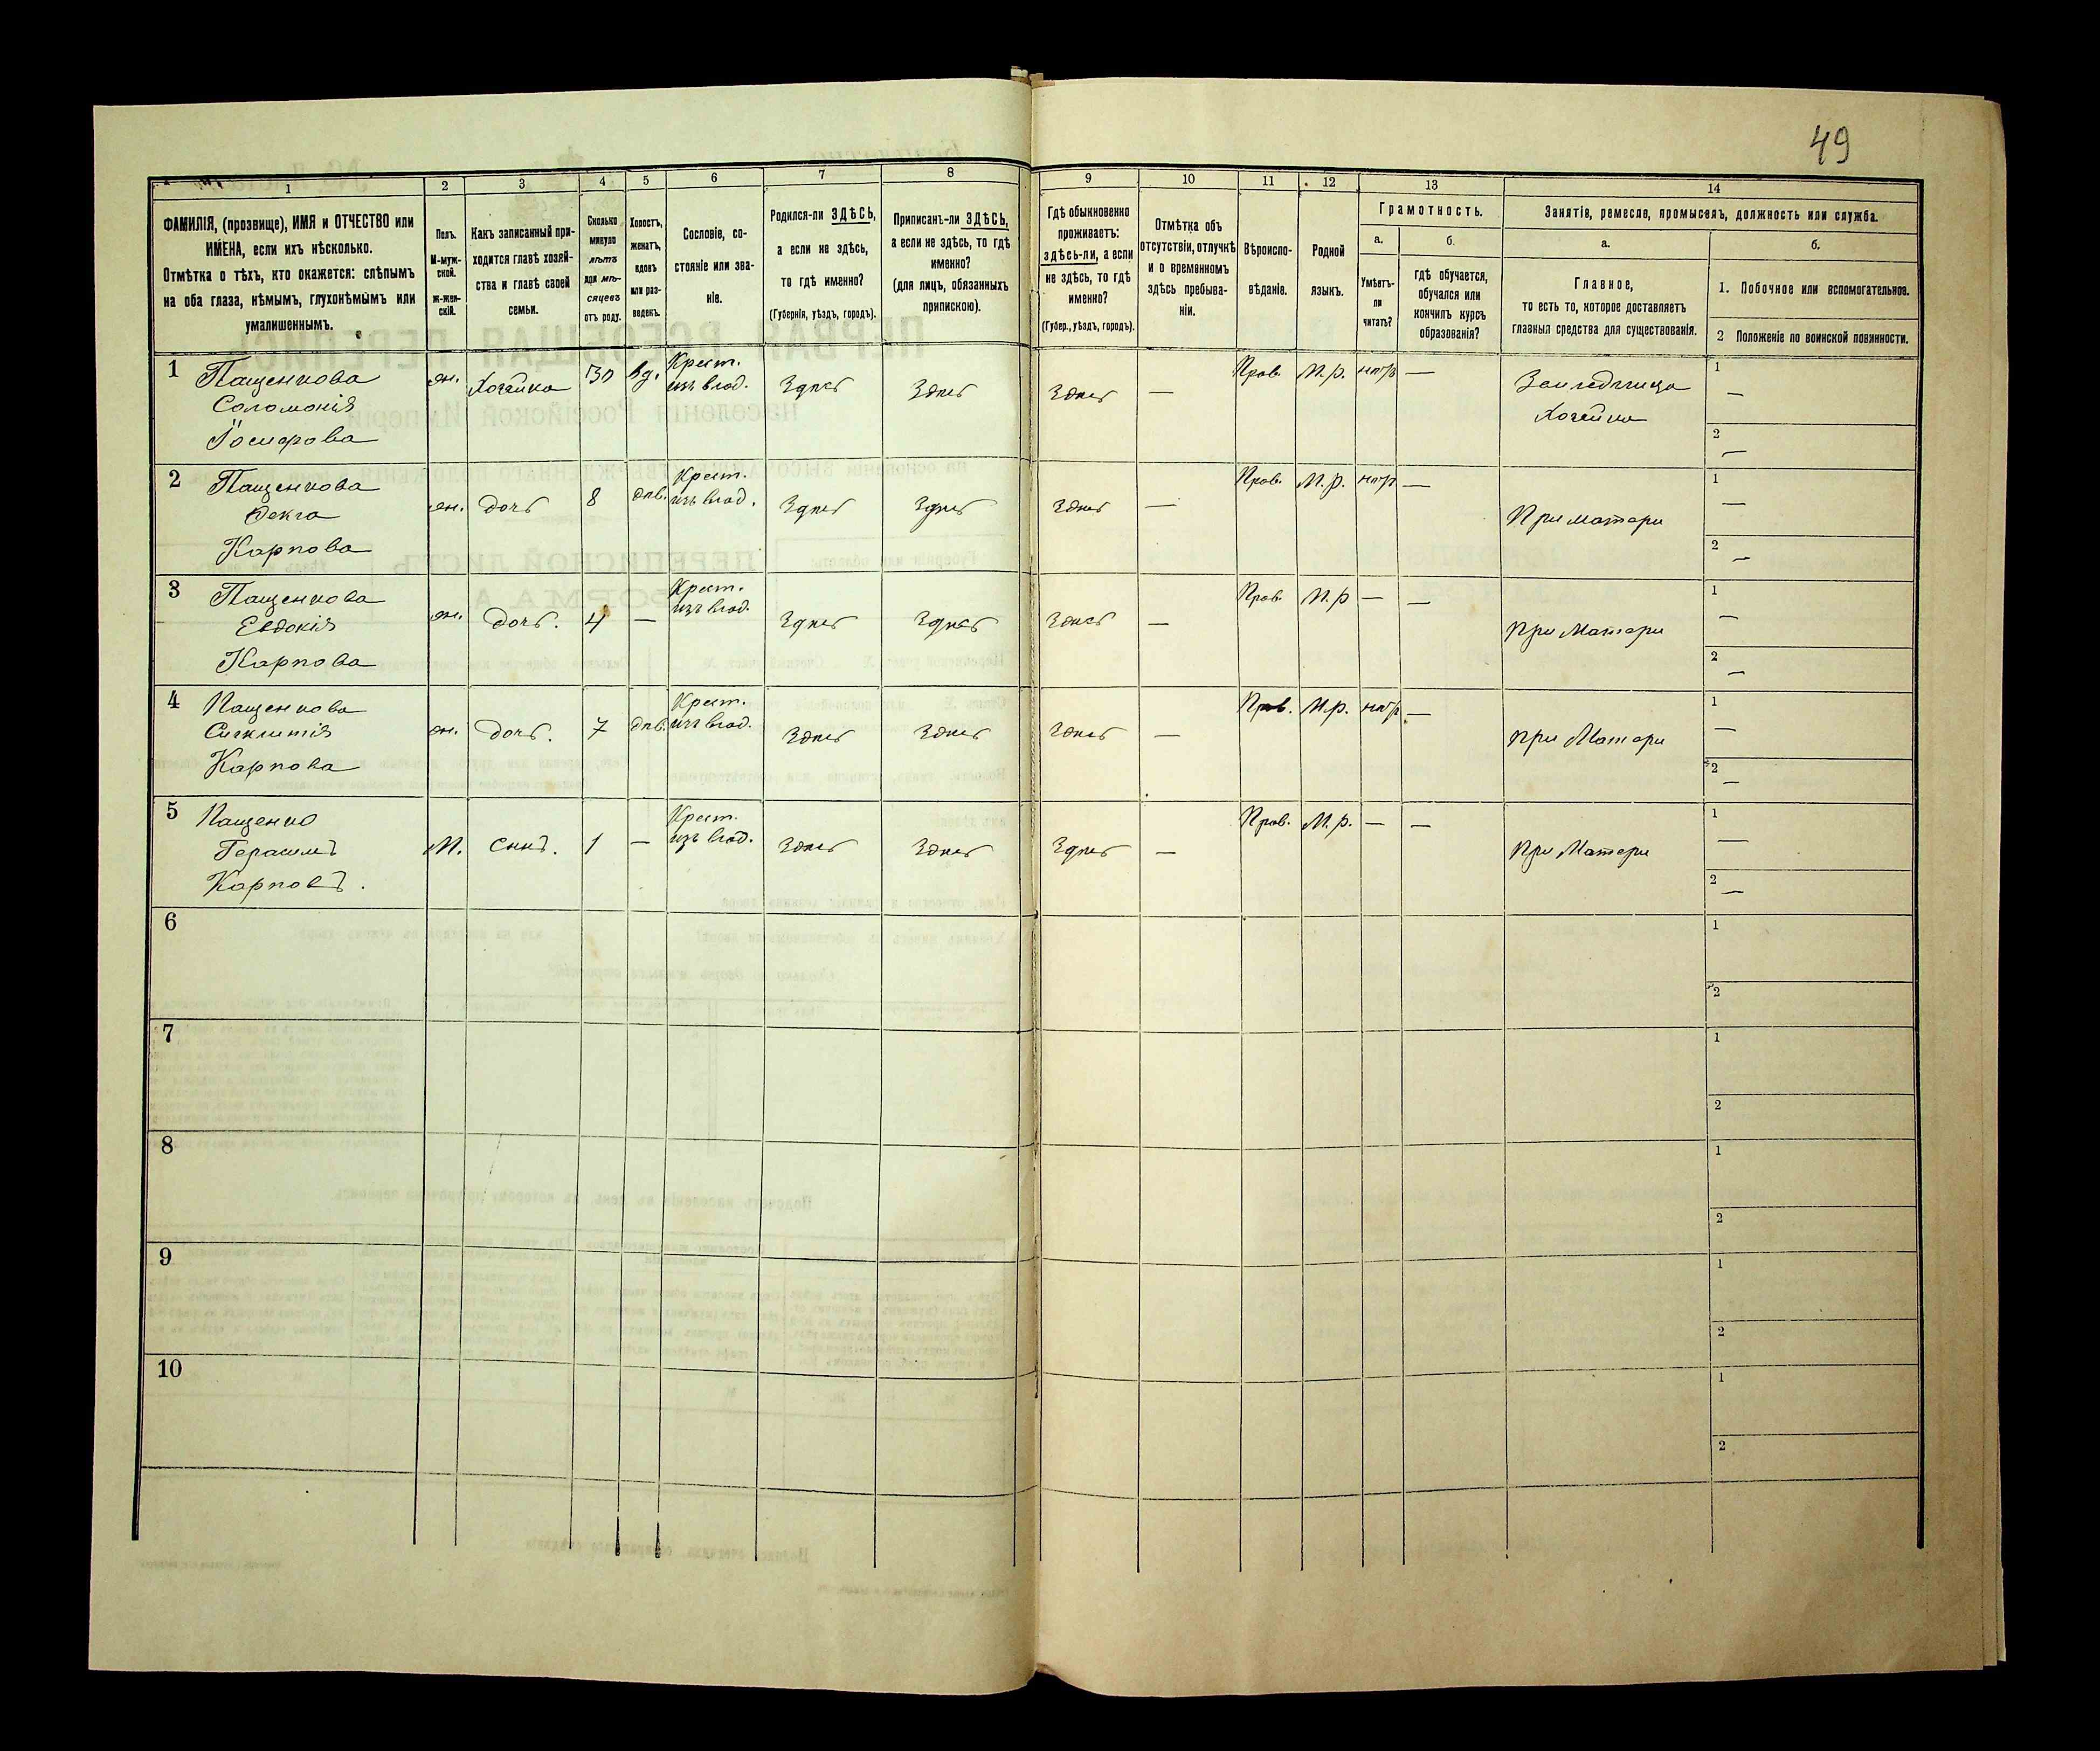 49
1 2 3 4 5 6 7 8 9 10 11 12 13 14
ФАМИЛІЯ, (прозвище), ИМЯ и ОТЧЕСТВО или
ИМЕНА, если ихъ нѣсколько.
Отмѣтка о тѣхъ, кто окажется: слѣпымъ
на оба глаза, нѣмымъ, глухонѣмымъ или
умалишеннымъ.
Полъ.
М-муж-
ской.
ж-жен-
скій.
Какъ записанный при-
ходится главѣ хозяй-
ства и главѣ своей
семьи.
Сколько
минуло
лѣтъ
или мѣ-
сяцевъ
отъ роду.
Холостъ,
женатъ,
вдовъ
или раз-
веденъ.
Сословіе, со-
стояніе или зва-
ніе.
Родился-ли ЗДѢСЬ,
а если не здѣсь,
то гдѣ именно?
(Губернія, уѣздъ, городъ).
Приписанъ-ли ЗДѢСЬ,
а если не здѣсь, то гдѣ
именно?
(для лицъ, обязанныхъ
припискою).
Гдѣ обыкновенно
проживаетъ:
здѣсь-ли, а если
не здѣсь, то гдѣ
именно?
(Губер., уѣздъ, городъ).
Отмѣтка объ
отсутствіи, отлучкѣ
и о временномъ
здѣсь пребыва-
ніи.
Вѣроиспо-
вѣданіе.
Родной
языкъ.
Грамотность.
а.
Умѣетъ-
ли
читать?
б.
гдѣ обучается,
обучался или
кончилъ курсъ
образованія?
Занятіе, ремесло, промыселъ, должность или служба.
а.
Главное,
то есть то, которое доставляетъ
главныя средства для существованія.
б.
1. Побочное или вспомогательное.
2 Положеніе по воинской повинности.
1 Пащенкова
Соломонія
Іосифова
жн. Хозяйка 30 вд. Крест.
изъ влад.
Здесь Здесь Здесь — Прав. М.р. нетъ —
Хозяйка
1 —
2 —
2 Пащенкова
Фекла
Карпова
жн. дочь 8 дев. Крест.
изъ влад.
Здесь Здесь Здесь — Прав. М.р. нетъ — При матери
1 —
2 —
3 Пащенкова
Евдокія
Карпова
жн. дочь. 4 — Крест.
изъ влад.
Здесь Здесь Здесь — Прав. М.р — — при Матери
1 —
2 —
4 Пащенкова
Синклитія
Карпова
жн. дочь. 7 дев. Крест.
изъ влад.
Здесь Здесь Здесь — Прав. М.р. нетъ — при Матери
1 —
2 —
5 Пащенко
Герасимъ
Карповъ.
М. сынъ. 1 — Крест.
изъ влад.
Здесь Здесь Здесь — Прав. М.р. — — при Матери
1 —
2 —
6
1
2
7
1
2
8
1
2
9
1
2
10
1
2